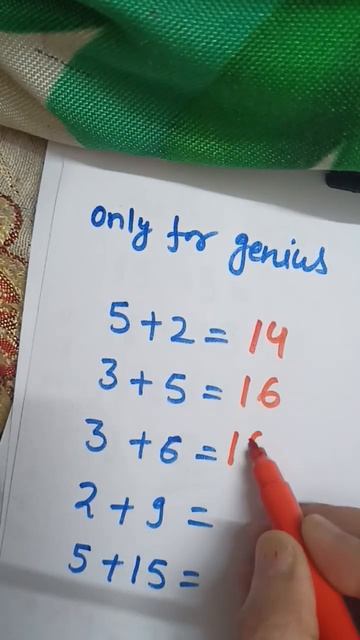 only for genius
5+2= 14
3+5= 16
3+6=1
2+9=
5+15=